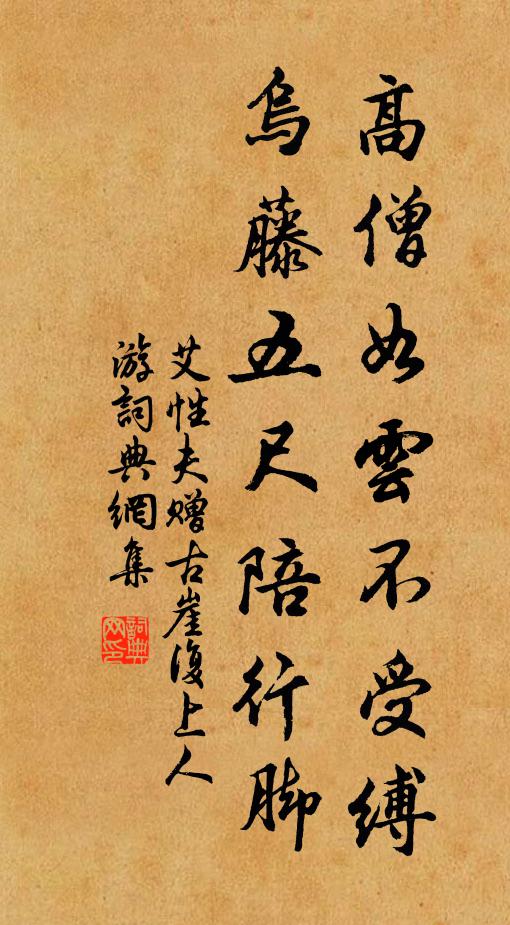 高僧如雲不受縛
烏藤五尺陪行脚
艾性夫赠古崖復上人
游詞典網集
詞典網印